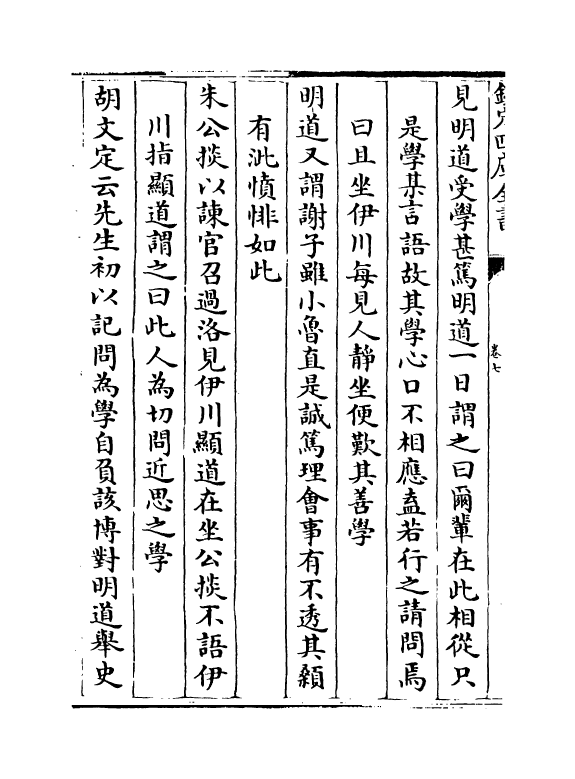 欽定四庫全書
卷七
見明道受學甚篤明道一日謂之曰爾輩在此相從只
是學某言語故其學心口不相應盍若行之請問焉
曰且坐伊川每見人靜坐便歎其善學
明道又謂謝子雖小魯直是誠篤理會事有不透其顙
有泚憤悱如此
朱公掞以諫官召過洛見伊川顯道在坐公掞不語伊
川指顯道謂之曰此人為切問近思之學
胡文定云先生初以記問為學自負該博對明道舉史